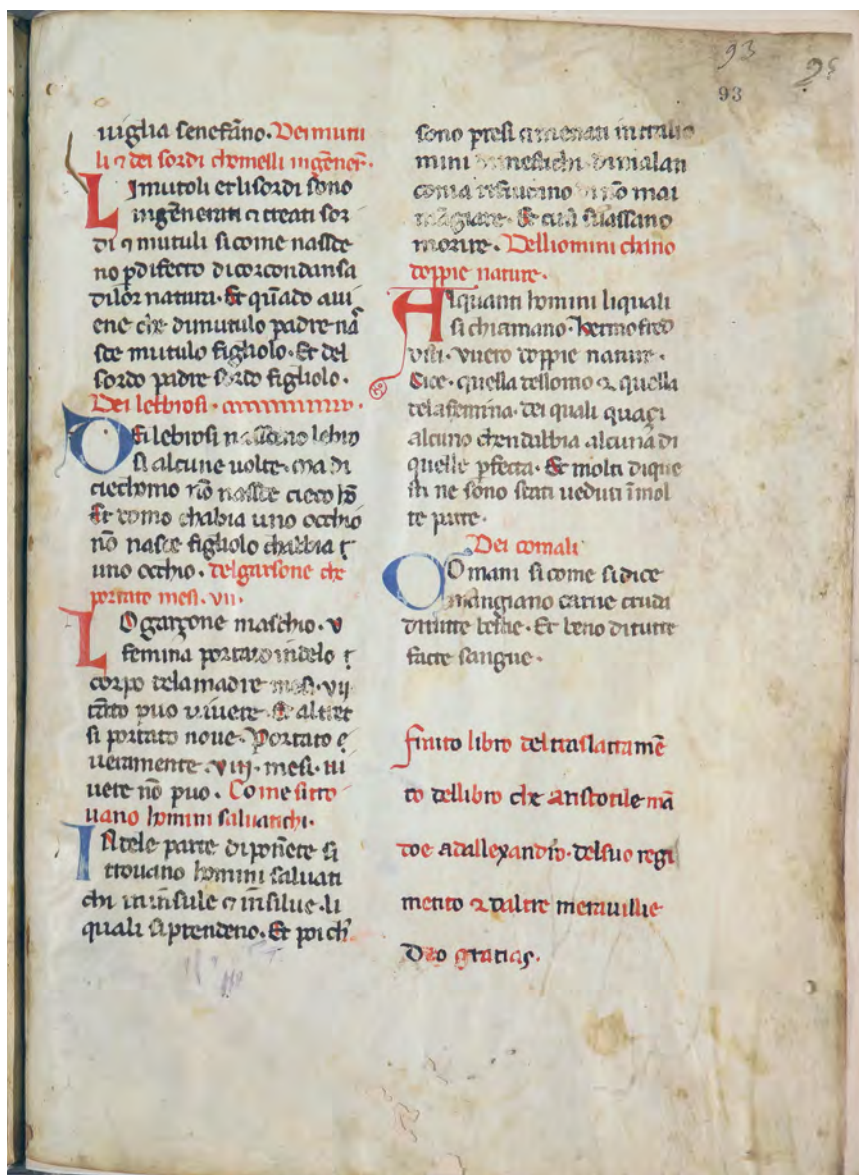 93
95
93
uiglia senefāno. Dei mutu
li ⁊ dei sordi chomelli ingēner̄.
LI mutoli et li sordi sono
ingēnerati ⁊ creati sor
di ⁊ mutuli si come nasscie
no p difecto di corcondansa
di lor natura. Et quādo aui
ene che di mutulo padre na
sce mutulo figliolo. Et del
sordo padre sordo figliolo.
Dei lebrosi.
DEi lebrosi nasscano lebro
si alcune uolte. ma di
ciechomo nō nassce cieco hō
Et homo chabia uno occhio
nō nasce figliolo chabbia
uno occhio. del garsone che
portato mesi. vii.
LO garzone maschio. v
femina portato in delo
corpo dela madre mesi. vij
tāto puo viuere. Et altret
si portato noue. Portato
ueramente. viij. mesi. ui
uere nō puo. Come si tro
uano homini saluatichi.
IN tele parte di ponēte si
trouano homini saluati
chi in insule ⁊ in silue. li
quali si prendeno. Et poi ch̄
sono presi ⁊ menati intra li o
mini di malan
conia nō mai
māgiare. Et cusi si lassano
morire. Delli omini chāno
doppie nature.
ALquanti homini li quali
si chiamano. hermofrod
diti. vuero doppie nature.
Cioe. quella dellomo ⁊ quella
dela femina. dei quali quaçi
alcuno chend abbia alcuna di
quelle pfecta. Et molti di que
sti ne sono stati ueduti ī mol
te parte.
Dei comali
COmani si come si dice
mangiano carne cruda
di tutte bestie. Et beno di tutte
facte sangue.
finito libro del traslattamē
to del libro che aristotile mā
doe ad allexandro. del suo regi
mento ⁊ daltre merauillie
Deo gratias.